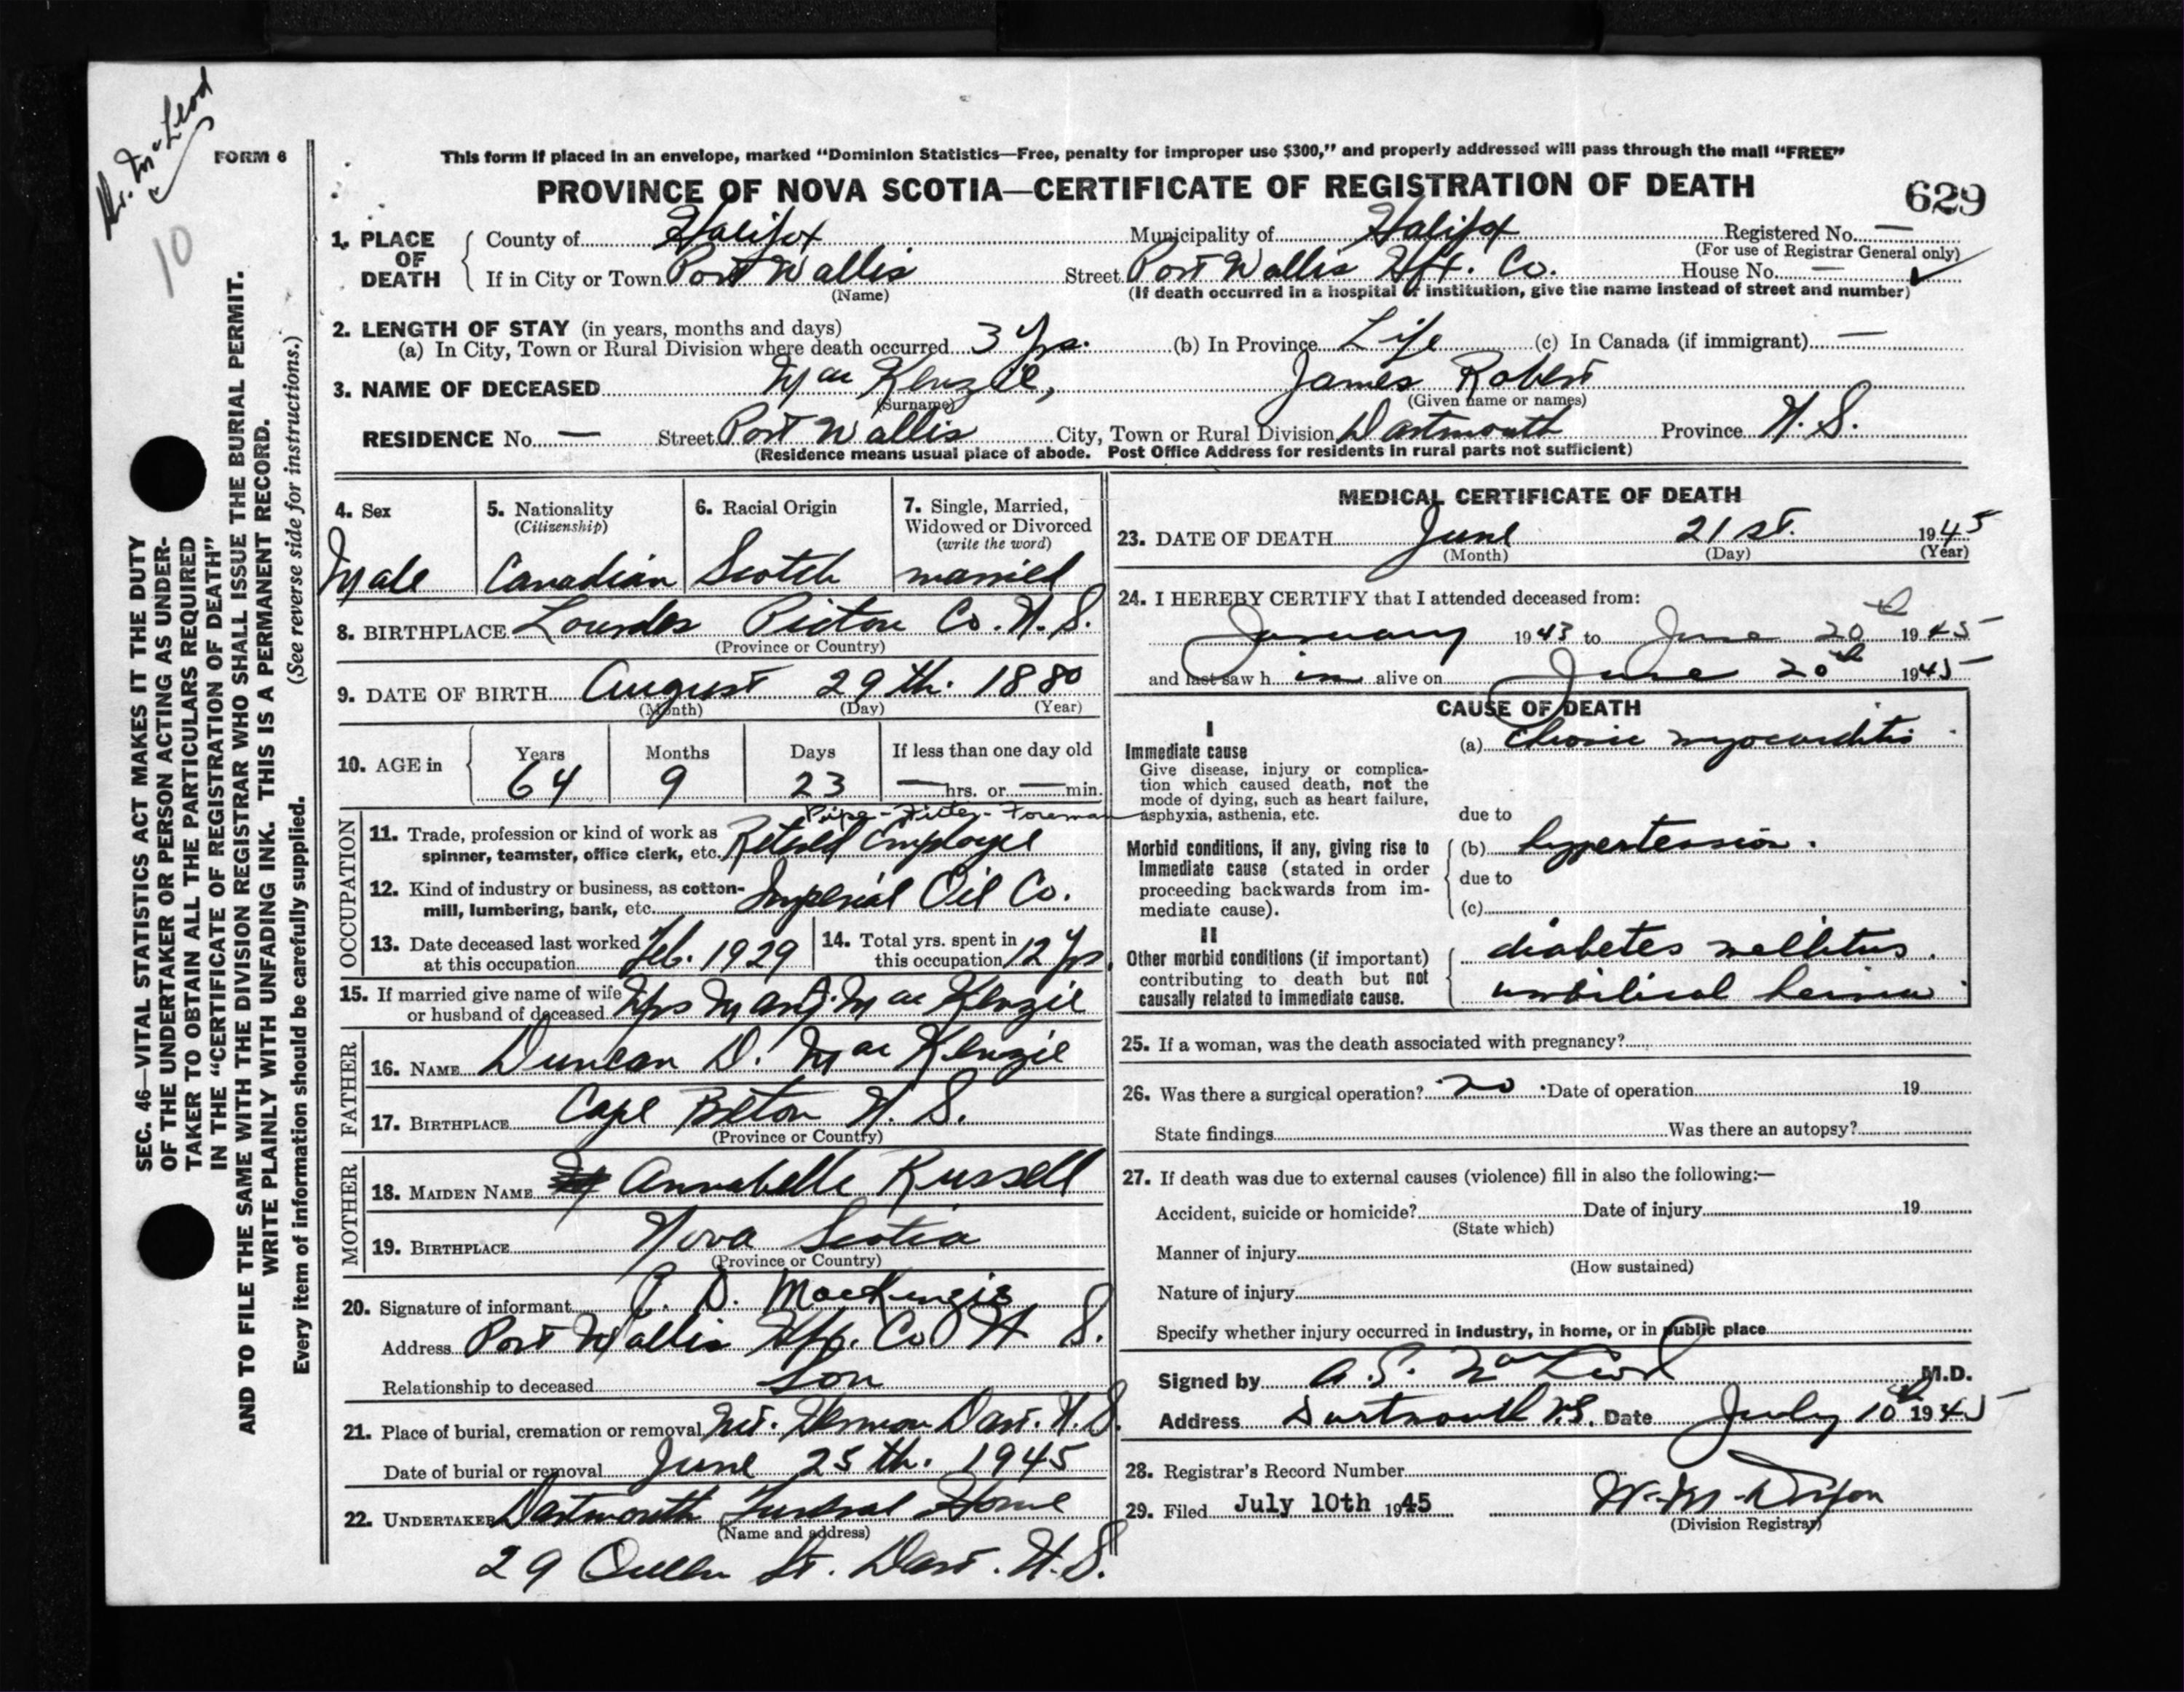 Dr. McLeod
10
FORM 6
This form if placed in an envelope, marked “Dominion Statistics—Free, penalty for improper use $300,” and properly addressed will pass through the mail “FREE”
PROVINCE OF NOVA SCOTIA—CERTIFICATE OF REGISTRATION OF DEATH
629
1. PLACE OF DEATH
County of Halifax Municipality of Halifax Registered No. —
(For use of Registrar General only)
If in City or Town Port Wallis Street Port Wallis Hfx. Co. House No. —
(Name) (If death occurred in a hospital or institution, give the name instead of street and number)
2. LENGTH OF STAY (in years, months and days)
(a) In City, Town or Rural Division where death occurred 3 Yrs. (b) In Province Life (c) In Canada (if immigrant) —
3. NAME OF DECEASED Mac Kenzie, James Robert
(Surname) (Given name or names)
RESIDENCE No. — Street Port Wallis City, Town or Rural Division Dartmouth Province N. S.
(Residence means usual place of abode. Post Office Address for residents in rural parts not sufficient)
4. Sex
Male
5. Nationality
(Citizenship)
Canadian
6. Racial Origin
Scotch
7. Single, Married,
Widowed or Divorced
(write the word)
married
8. BIRTHPLACE Lourdes Pictou Co. N. S.
(Province or Country)
9. DATE OF BIRTH August 29th. 1880
(Month) (Day) (Year)
10. AGE in
Years Months Days If less than one day old
64 9 23 — hrs. or — min.
OCCUPATION
Pipe-Fitter-Foreman
11. Trade, profession or kind of work as
spinner, teamster, office clerk, etc. Retired Employee
12. Kind of industry or business, as cotton-
mill, lumbering, bank, etc. Imperial Oil Co.
13. Date deceased last worked
at this occupation Feb. 1929
14. Total yrs. spent in
this occupation 12 Yrs.
15. If married give name of wife
or husband of deceased Mrs Mary J. Mac Kenzie
FATHER
16. NAME Duncan D. Mac Kenzie
17. BIRTHPLACE Cape Breton N. S.
(Province or Country)
MOTHER
18. MAIDEN NAME Annabelle Russell
19. BIRTHPLACE Nova Scotia
(Province or Country)
20. Signature of informant D. MacKenzie
Address Port Wallis Hfx. Co N S.
Relationship to deceased Son
21. Place of burial, cremation or removal Mt. Hermon Dart. N. S.
Date of burial or removal June 25th. 1945
22. UNDERTAKER Dartmouth Funeral Home
(Name and address)
29 Queen St. Dart. N. S.
MEDICAL CERTIFICATE OF DEATH
23. DATE OF DEATH June 21st. 1945
(Month) (Day) (Year)
24. I HEREBY CERTIFY that I attended deceased from:
January 1943 to June 20th 1945
and last saw h im alive on June 20th 1945
CAUSE OF DEATH
I
Immediate cause
Give disease, injury or complica-
tion which caused death, not the
mode of dying, such as heart failure,
asphyxia, asthenia, etc.
(a) Chronic myocarditis
due to
Morbid conditions, if any, giving rise to
immediate cause (stated in order
proceeding backwards from im-
mediate cause).
(b) hypertension.
due to
(c)
II
Other morbid conditions (if important)
contributing to death but not
causally related to immediate cause.
diabetes mellitus.
umbilical hernia
25. If a woman, was the death associated with pregnancy?
26. Was there a surgical operation? no Date of operation 19
State findings Was there an autopsy?
27. If death was due to external causes (violence) fill in also the following:—
Accident, suicide or homicide? Date of injury 19
(State which)
Manner of injury
(How sustained)
Nature of injury
Specify whether injury occurred in industry, in home, or in public place
Signed by A. S. MacLeod M.D.
Address Dartmouth N.S. Date July 10th 1945
28. Registrar's Record Number
29. Filed July 10th 1945 W. M. Dixon
(Division Registrar)
SEC. 46—VITAL STATISTICS ACT MAKES IT THE DUTY
OF THE UNDERTAKER OR PERSON ACTING AS UNDER-
TAKER TO OBTAIN ALL THE PARTICULARS REQUIRED
IN THE “CERTIFICATE OF REGISTRATION OF DEATH”
AND TO FILE THE SAME WITH THE DIVISION REGISTRAR WHO SHALL ISSUE THE BURIAL PERMIT.
WRITE PLAINLY WITH UNFADING INK. THIS IS A PERMANENT RECORD.
Every item of information should be carefully supplied. (See reverse side for instructions.)